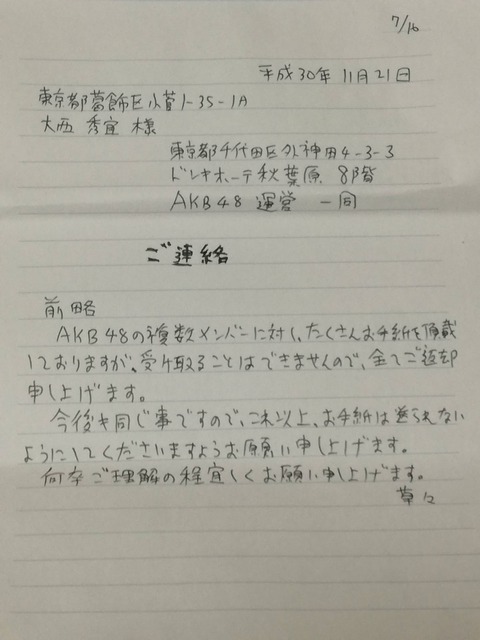 7/16
平成30年11月21日
東京都葛飾区小菅1-35-1A
大西 秀宜 様
東京都千代田区外神田4-3-3
ドンキホーテ秋葉原 8階
AKB48 運営 一同
ご連絡
前略
AKB48の複数メンバーに対し、たくさんお手紙を頂戴
しておりますが、受け取ることはできませんので、全てご返却
申し上げます。
今後も同じ事ですので、これ以上、お手紙は送られない
ようにしてくださいますようお願い申し上げます。
何卒ご理解の程宜しくお願い申し上げます。
草々